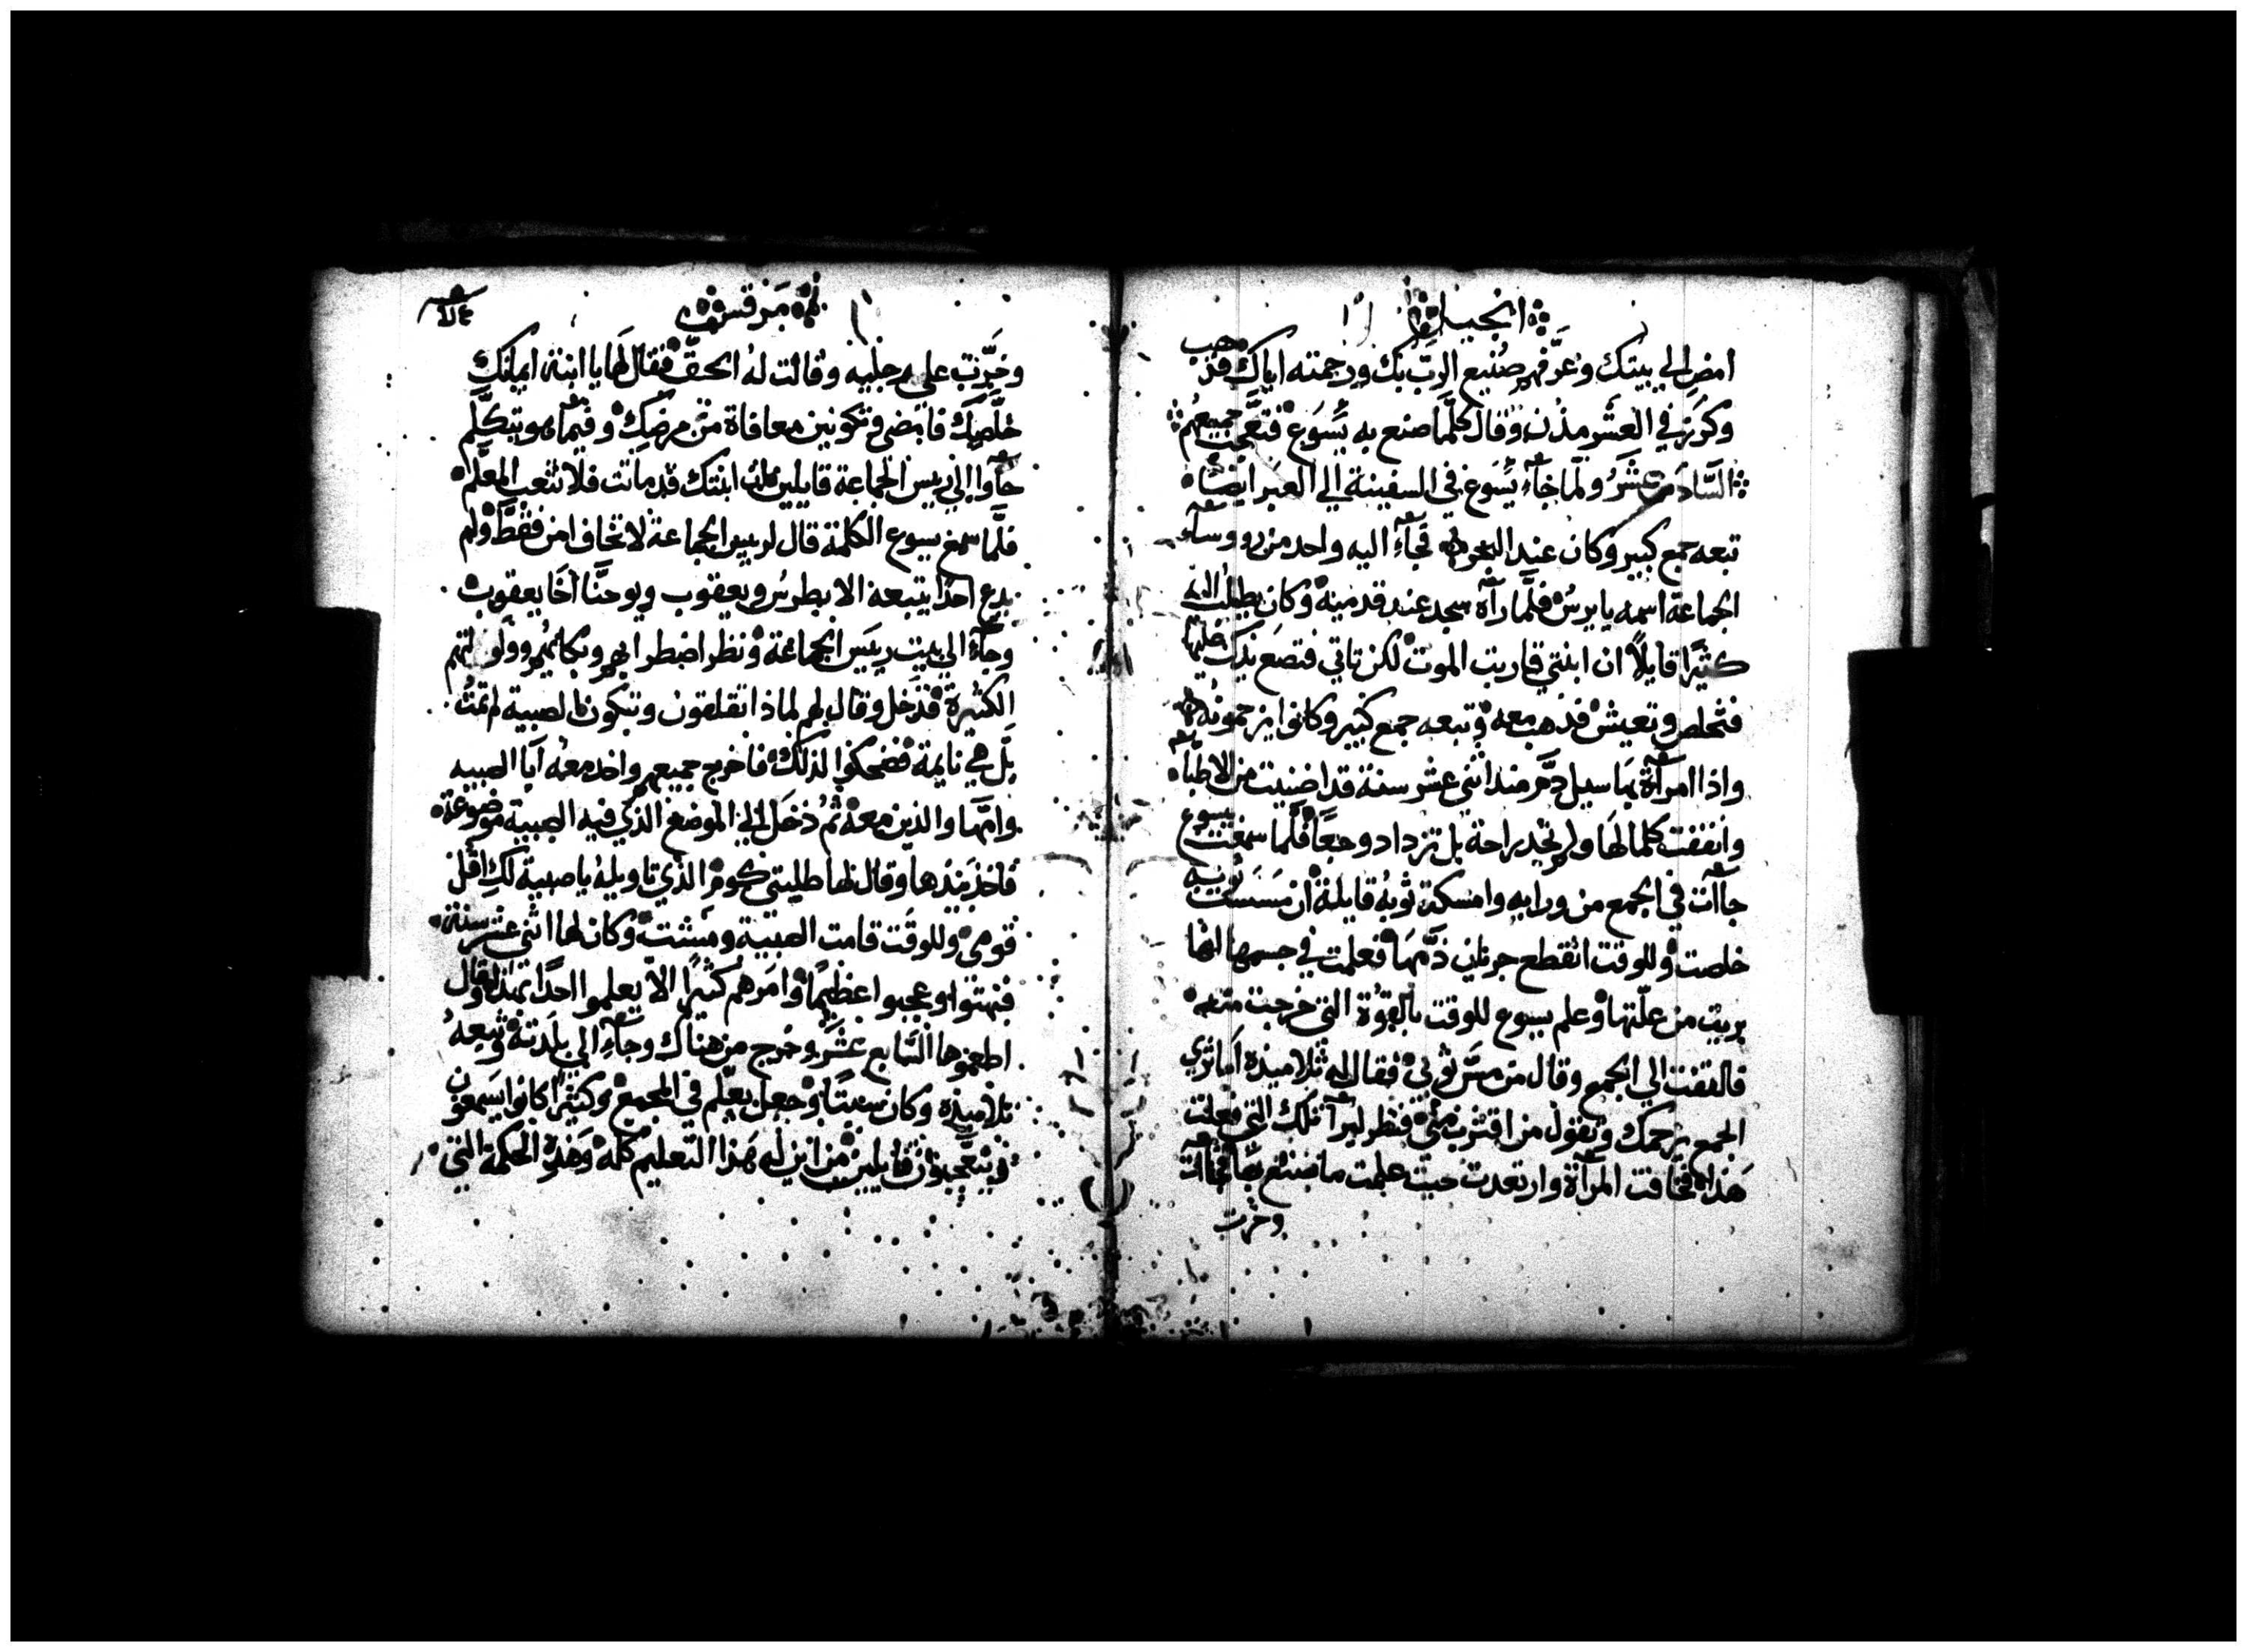 انجيل
امض الي بيتك وعرفهم صنيع الرب بك ورحمته اياك فذهب
وكرز في العشر مدن وقال كلما صنع به يسوع فتعجب جميعهم
السادس عشر ولما جاء يسوع في السفينة الي العبر ايضا
تبعه جمع كبير وكان عند البحر فجاء اليه واحد من روساء
الجماعة اسمه يايرس فلما رآه سجد عند قدميه وكان يطلب اليه
كثيرا قايلا ان ابنتي قاربت الموت لكن تاتي فتضع يدك عليها
فتخلص وتعيش فذهب معه وتبعه جمع كبير وكانوا يزحمونه
واذا امرآة بها سيل دم منذ اثني عشر سنة قد اضنيت من الاطباء
وانفقت كلما لها ولم تجد راحة بل تزداد وجعا فلما سمعت بيسوع
جاآت في الجمع من ورايه وامسكت ثوبه قايلة ان مسست ثوبه
خلصت وللوقت انقطع جريان دمها فعلمت في جسمها انها
بريت من علتها وعلم يسوع للوقت بالقوة التي خرجت منه
فالتفت الي الجمع وقال من مس ثوبي فقال له تلاميذه اما تري
الجمع يزحمك وتقول من اقترب مني فنظر ليرا تلك التي فعلت
هذا فخافت المرآة وارتعدت حيث علمت ما صنع بها فجاآت
وخرت
مرقس
وخرت علي رجليه وقالت له الحق فقال لها يا ابنة ايمانك
خلصك فامضي وتكونين معافاة من مرضك وفيما هو يتكلم
جآوا الي رييس الجماعة قايلين ابنتك قد ماتت فلا تتعب المعلم
فلما سمع يسوع الكلمة قال لرييس الجماعة لا تخاف امن فقط ولم
يدع احدا يتبعه الا بطرس ويعقوب ويوحنا اخا يعقوب
وجاء الي بيت رييس الجماعة ونظر اضطرابهم وبكائهم وولولتهم
الكثيرة فدخل وقال لهم لماذا تقلقون وتبكون الصبية لم تمت
بل هي نايمة فضحكوا لذلك فاخرج جميعهم واخد معه ابا الصبيه
وامها والذين معه ثم دخل الي الموضع الذي فيه الصبية موضوعة
فاخذ بيدها وقال لها طليتي كومي الذي تاويله يا صبية لك اقل
قومي وللوقت قامت الصبية ومشت وكان لها اثني عشر سنة
فبهتوا وعجبوا عظيما وامرهم كثيرا الا يعلموا احدا بهذا وقال
اطعموها السابع عشر وخرج من هناك وجاء الي بلدته وتبعه
تلاميذه وكان سبتا وجعل يعلم في المجمع وكثيرا كانوا يسمعون
ويتعجبون قايلين من اين له هذا التعليم كله وهذه الحكمة التي